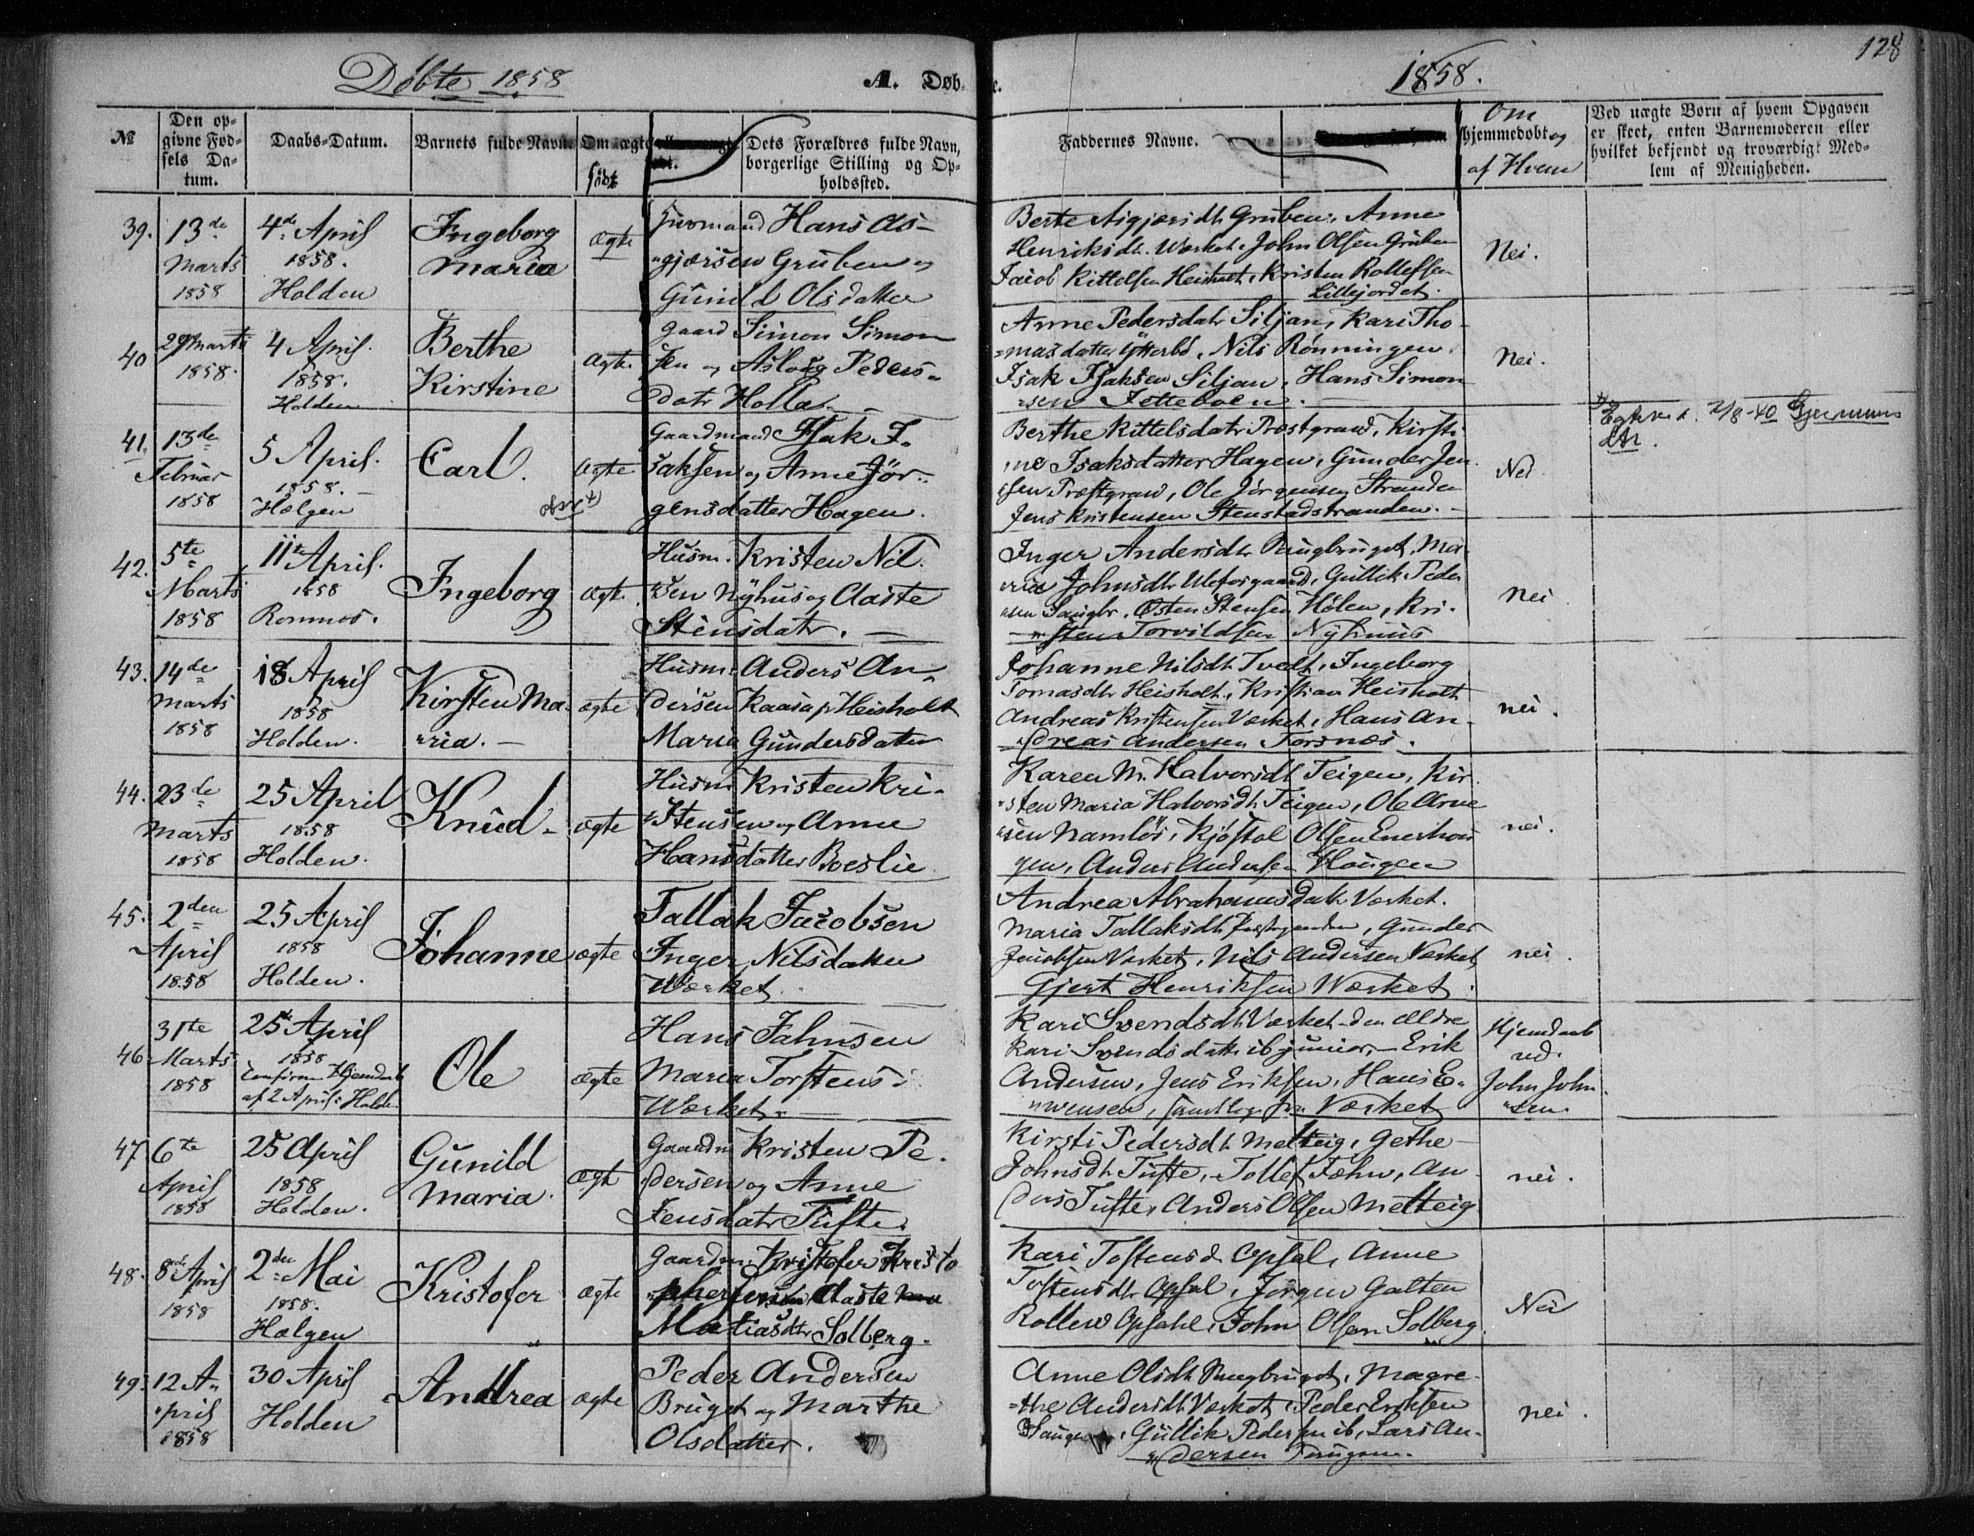 128
Døbte 1858
A. Døb-
e.
1858.
№
Den op-
givne Fød-
sels Da-
tum.
Daabs-Datum.
Barnets fulde Navn.
Om ægte
født
Dets Forældres fulde Navn,
borgerlige Stilling og Op-
holdssted.
Faddernes Navne.
Om
hjemmedøbt og
af Hvem
Ved uægte Børn af hvem Opgaven
er skeet, enten Barnemoderen eller
hvilket bekjendt og troværdigt Med-
lem af Menigheden.
39.
13de
Marts
1858
4de April
1858.
Holden
Ingeborg
Maria
ægte
Huusmand Hans As-
gjærsen Gruben og
Gunild Olsdatter
Berte Asgjærsdtr Gruben, Anne
Henriksdtr. Værket, John Olsen Gruben
Jacob Kittelsen Heisholt, Kristen Rollefsen
Lillejordet.
Nei.
40
29 Marts
1858.
4 April.
1858.
Holden
Berthe
Kirstine
ægte
Gaard Simon Simon
sen og Aslaug Peders-
datr Holla.
Anne Pedersdatr Siljan, Kari Tho-
masdatter Ytterbø, Nils Rønningen.
Isak Isaksen Siljan, Hans Simon
sen Jotteboen.
Nei.
41.
13de
Februar
1858
5 April.
1858.
Helgen
Carl.
ægte
Gaardmand Isak I-
saksen og Anne Jør-
gensdatter Hagen.
Berthe Kittelsdatr Præstgrand, Kirsti
ne Isaksdatter Hagen, Gunder Jen
sen Præstgrav, Ole Jørgensen Stranden
Jens Kristensen Stenstadstranden.
Nei
2/8-40
42.
5te
Marts
1858
11te April.
1858
Romnes.
Ingeborg
ægte
Husm. Kristen Nil
sen Nyhus og Aaste
Stensdatr.
Inger Andersdtr Saugbruget, Ma-
ria Johnsdtr Ulefosgaard, Gullik Peder
sen Saugbr., Østen Stensen Hølen, Kri-
sten Torvildsen Nyhuus
Nei
43.
14de
Marts
1858
18 April
1858
Holden.
Kirsten Ma-
ria.
ægte
Husm. Anders An-
dersen Kaasa p. Heisholt
Maria Gundersdatter
Johanne Nilsdtr Tvedt, Ingeborg
Tomasdtr Heisholt, Kristian Heisholt
Andreas Kristensen Værket, Hans An-
dreas Andersen Torsnæs.
nei.
44.
23de
Marts
1858
25 April
1858
Holden.
Knud.
ægte
Husm Kristen Kri-
stensen og Anne
Hansdatter Boeslie
Karen M. Halvorsdtr Teigen, Kir-
sten Maria Halvorsdtr Teigen, Ole Arne
sen Namløs, Kjøstol Olsen Enerhau
gen, Anders Andersen Haugen
nei.
45.
2den
April
1858
25 April
1858
Holden.
Johanne
ægte
Tallak Jacobsen
Inger Nilsdatter
Værket
Andrea Abrahamsdatr Værket.
Maria Tallaksdtr, Gunder
Jacobsen Værket, Nils Andersen Værket
Gjert Henriksen Værket.
nei.
46
31te
Marts
1858
25te April
1858
Confirm Hjemdaab
af 2 April i Holden
Ole
ægte
Hans Jahnsen
Maria Torstens
Værket.
Kari Svendsdtr Værket den Ældre
Kari Svendsdatr ib junior, Erik
Andersen, Jens Eriksen, Hans E-
vensen, samtlige fra Værket
Hjemdaab
ud.
John John
sen.
47
6te
April
1858
25 April
1858
Holden.
Gunild
Maria.
ægte
Gaardm Kristen Pe-
dersen og Anne
Jensdatr Tufte.
Kirsti Pedersdtr Melteig, Gethe
Johnsdtr Tufte, Tollef Fæhn, An-
ders Tufte, Anders Olsen Melteig
nei.
48.
8de April
1858
2den Mai
1858.
Helgen
Kristofer
ægte
Gaardm. Kristofer Kristo
phersen Aaste
Matiasdtr Solberg.
Kari Tostensd Opsal, Anne
Tostensdtr Opsal, Jørgen Galten
Rollev Opsahl, John Olsen Solberg.
Nei
49.
12 A-
pril
1858
30 April
Holden
Andrea
ægte
Peder Andersen
Bruget og Marthe
Olsdatter.
Anne Olsdtr Saugbruget, Magre-
the Andersdtr Værket, Peder Eriksen
Gullik Pedersen ib, Lars An-
dersen
nei.